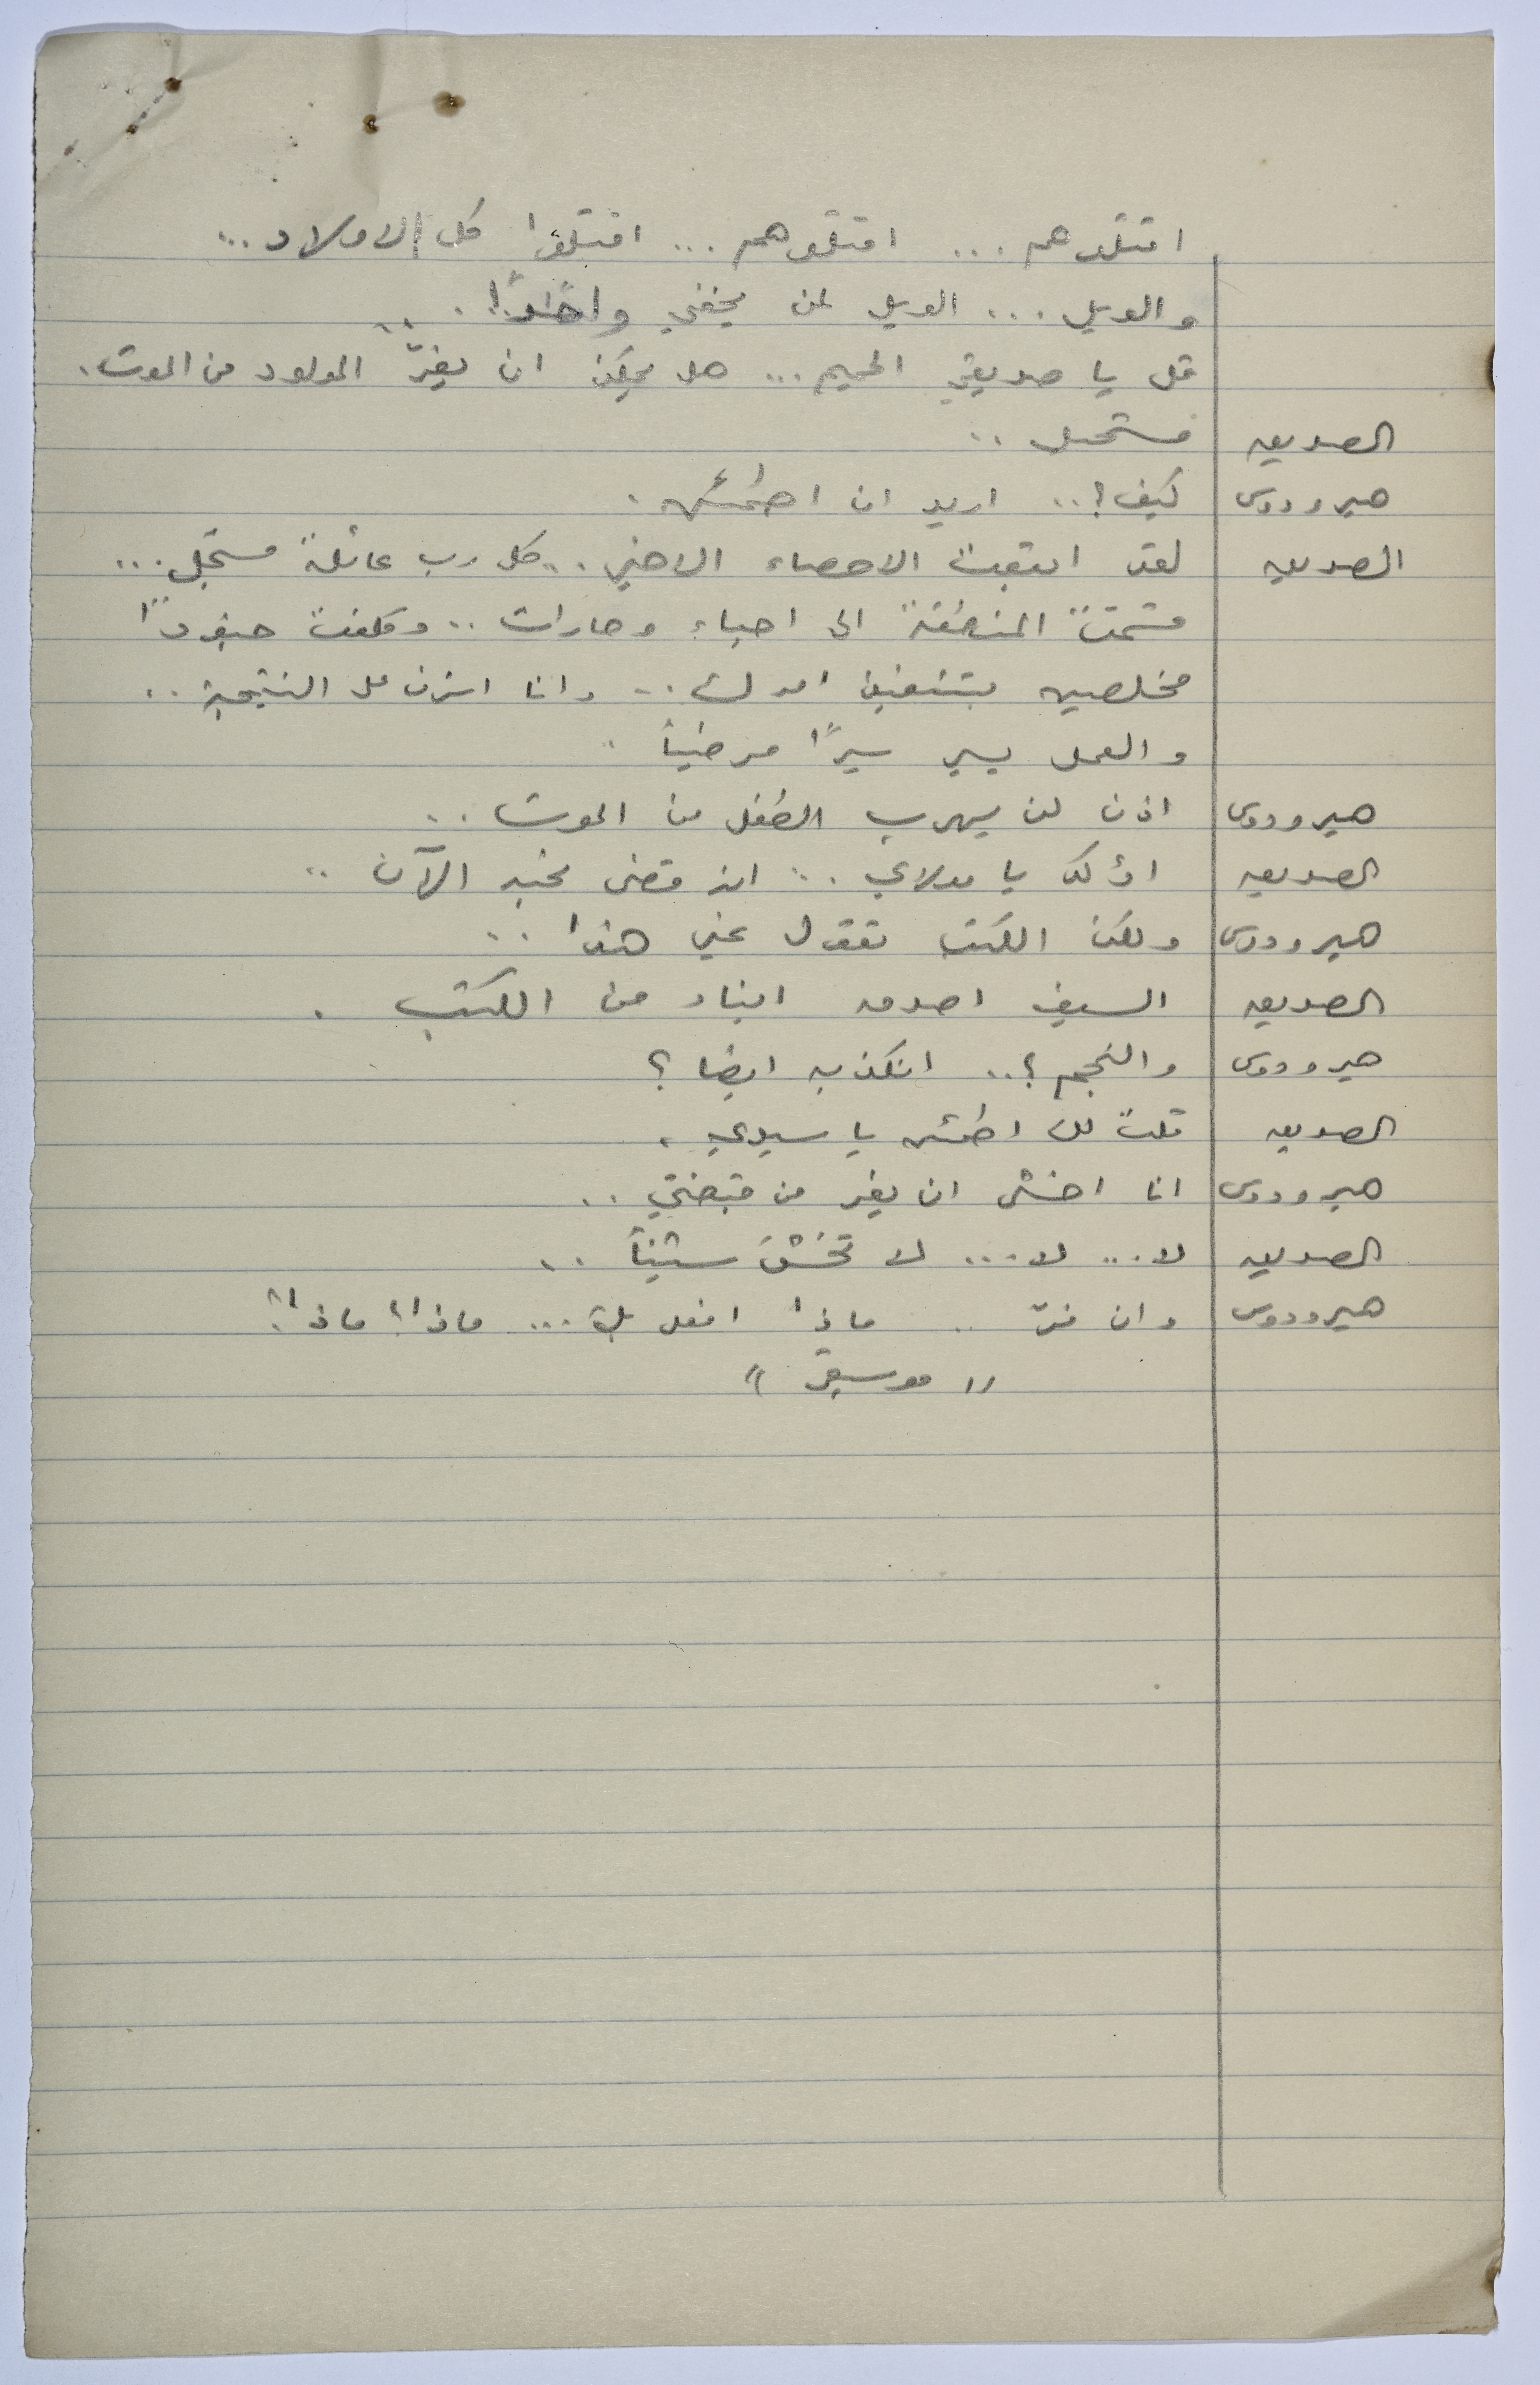 اقتلوهم ... اقتلوهم ... اقتلوا كل الاولاد ...
والويل ... الويل لمن يخفي واحدًا ..
قل يا صديقي الحميم ... هل يمكن ان يفرّ المولود من الموت .
الصديق مستحيل ..
هيرودوس كيف ؟ .. اريد ان اطمئن .
الصديق لقد اتبعت الاحصاء الاخير .. كل رب عائلة مسجّل ...
قسّمتُ المنطقة الى احياء وحارات .. وكلفت جنودًا
مخلصين بتنفيذ امرك .. وانا اشرف على النتيجة ..
والعمل يسير سيرًا مرضيًا .
هيرودوس اذن لن يهرب الطفل من الموت ..
الصديق اؤكد يا مولاي .. انه قضى نحبه الآن ..
هيرودوس ولكن الكتب تقول غير هذا ..
الصديق السيف اصدق انباء من الكتب .
هيرودوس والنجم ؟ .. اتكذبه ايضا ؟
الصديق قلت لك اطمئن يا سيدي .
هيرودوس انا اخشى ان يفر من قبضتي ..
الصديق لا ... لا ... لا تخشَ شيئًا ..
هيرودوس وان فرّ .. ماذا افعل به ... ماذا ؟ ماذا ؟
" موسيقى "